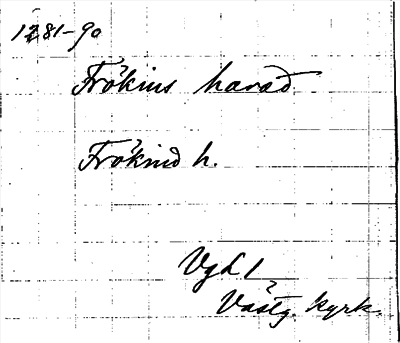 1281-90
Frökins harad
Frökind h.
VgL 1
Västg. kyrk.